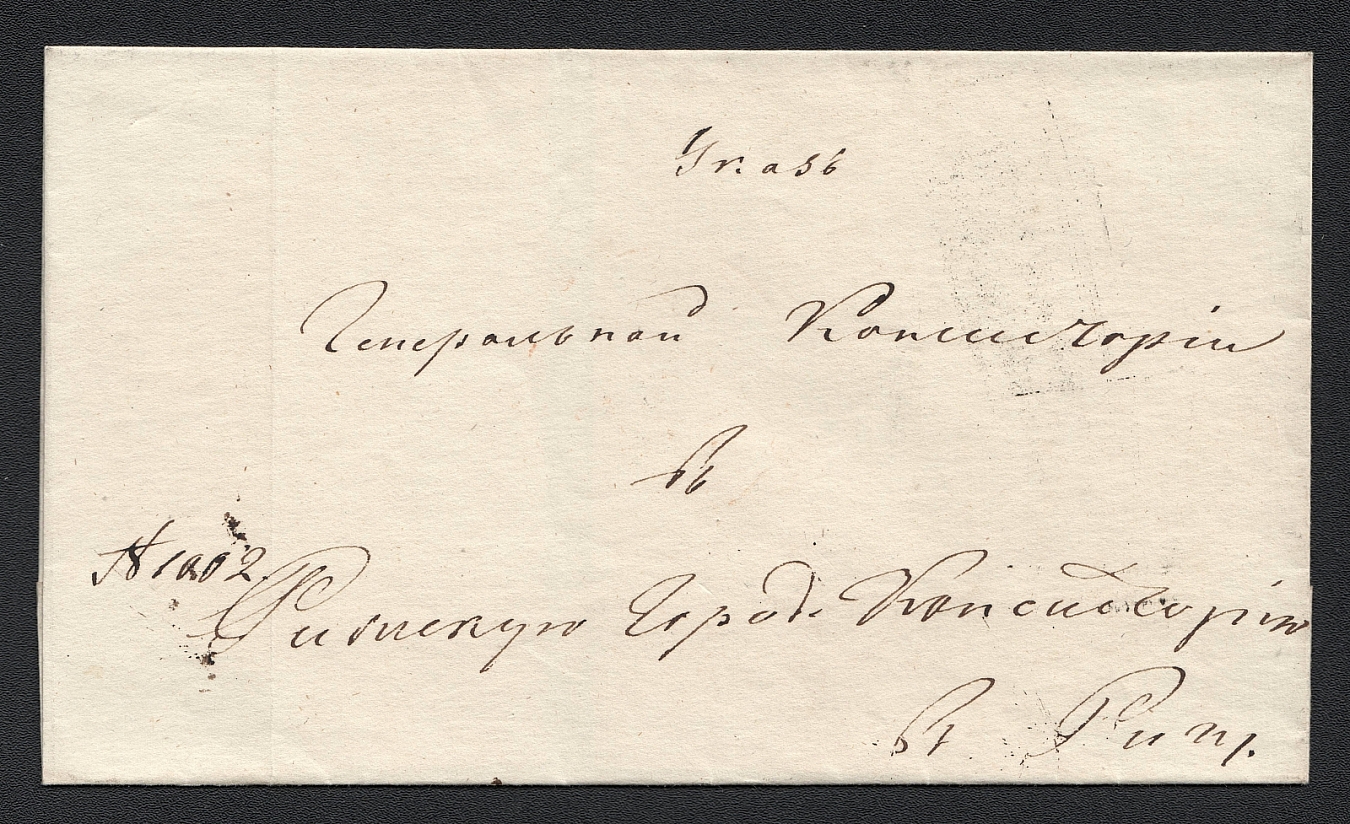 Указъ
Генеральной Консисторіи
въ
№ 1002.
Рижскую Город. Консисторію
въ Ригу.